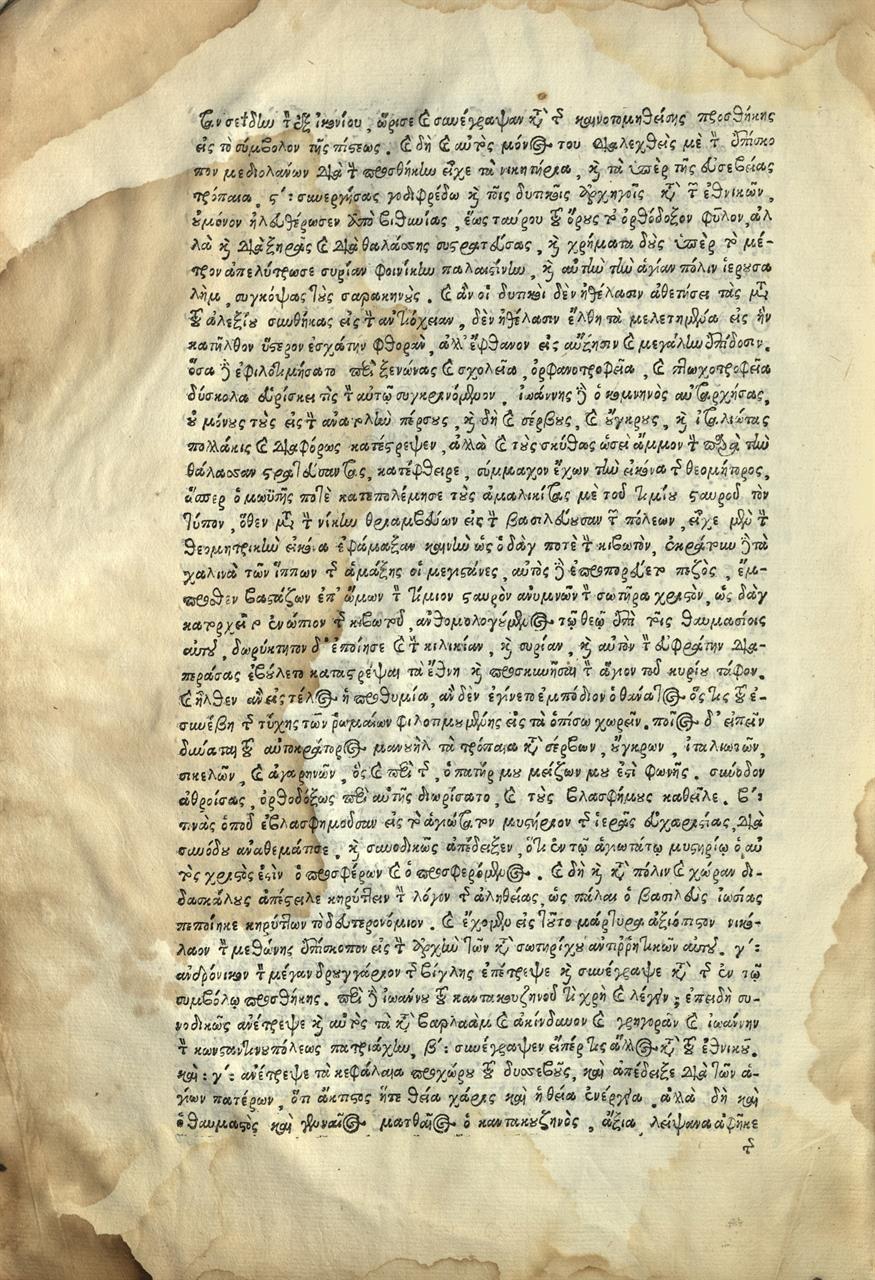 ὥρισε καὶ συνέγραψαν κατὰ τῆς καινοτομηθείσης προσθήκης
εἰς τὸ σύμβολον τῆς πίστεως. καὶ δὴ καὶ αὐτὸς μόνος του διαλεχθεὶς μὲ τὸν ἐπίσκο
πον μεδιολάνων διὰ τὴν προσθήκην εἶχε τὰ νικητήρια, καὶ τὰ ὑπὲρ τῆς εὐσεβείας
τρόπαια, ϛ΄: συνεργήσας γοδιφρέδω καὶ τοῖς δυτικοῖς ἀρχηγοῖς κατὰ τῶν ἐθνικῶν,
οὐ μόνον ἠλευθέρωσεν ἀπὸ βιθυνίας, ἕως ταύρου τοῦ ὄρους τὸ ὀρθόδοξον φῦλον, ἀλ
λὰ καὶ διὰ ξηρᾶς καὶ διὰ θαλάσσης συστρατεύσας, καὶ χρήματα δοὺς ὑπὲρ τὸ μέ-
τρον ἀπελύτρωσε συρίαν φοινίκην παλαιστίνην, καὶ αὐτὴν τὴν ἁγίαν πόλιν ἱερουσα
λὴμ, συγκόψας τοὺς σαρακηνούς. καὶ ἂν οἱ δυτικοὶ δὲν ἠθέλασιν ἀθετήσει τὰς μετὰ
τοῦ ἀλεξίου συνθήκας εἰς τὴν ἀντιόχειαν, δὲν ἠθέλασιν ἔλθῃ τὰ μελετημένα εἰς ἣν
κατῆλθον ὕστερον ἐσχάτην φθορὰν, ἀλλ᾽ ἔφθανον εἰς αὔξησιν καὶ μεγάλην ἐπίδοσιν.
ὅσα δὲ ἐφιλοτιμήσατο περὶ ξενῶνας καὶ σχολεῖα, ὀρφανοτροφεῖα, καὶ πτωχοτροφεῖα
δύσκολα εὑρίσκει τὶς τὴν αὐτῷ συγκρινόμενον. ἰωάννης δὲ ὁ κομνηνὸς αὐταρχήσας,
οὐ μόνους τοὺς εἰς τὴν ἀνατολὴν πέρσους, καὶ δὴ καὶ σέρβους, καὶ οὔγκρους, καὶ ἰταλιώτας
πολλάκις καὶ διαφόρως κατέστρεψεν, ἀλλὰ καὶ τοὺς σκύθας ὡσεὶ ἄμμον τὴν παρὰ τὴν
θάλασσαν στρατεύσαντας, κατέφθειρε, σύμμαχον ἔχων τὴν εἰκόνα τῆς θεομήτορος,
ὥσπερ ὁ μωϋσῆς ποτὲ κατεπολέμησε τοὺς ἀμαλικίτας μὲ τοῦ τιμίου σταυροῦ τὸν
τύπον, ὅθεν μετὰ τὴν νίκην θριαμβεύων εἰς τὴν βασιλεύουσαν τῶν πόλεων, εἶχε μὲν τὴν
θεομητρικὴν εἰκόνα ἐφάμαξαν καινὴν ὡς ὁ δαδ ποτὲ τὴν κιβωτὸν, ἐκράτουν δὲ τὰ
χαλινὰ τῶν ἵππων τῆς ἁμάξης οἱ μεγιστάνες, αὐτὸς δὲ ἐπροπορεύετο πεζὸς, ἔμ-
προσθεν βαστάζων ἐπ᾽ ὤμων τὸν τίμιον σταυρὸν ἀνυμνῶν τὸν σωτῆρα χριστὸν, ὡς δαδ
κατορχεῖτο ἐνώπιον τῆς κιβωτοῦ, ἀνθομολογούμενος τῷ θεῷ ἐπὶ τοῖς θαυμασίοις
αὐτοῦ, δωρύκτητον δ᾽ ἐποίησε καὶ τὴν κιλικίαν, καὶ συρίαν, καὶ αὐτὸν τὸν εὐφράτην δια-
περάσας ἐβούλετο καταστρέψαι τὰ ἔθνη καὶ προσκυνῆσαι τὸν ἅγιον τοῦ κυρίου τάφον.
καὶ ἦλθεν ἂν εἰς τέλος ἡ προθυμία, ἂν δὲν ἐγίνετο ἐμπόδιον ὁ θάνατος ὅς τις τοῦ ἐ-
συνέβη τῆς τύχης τῶν ῥωμαίων φιλοτιμουμένης εἰς τὰ ὀπίσω χωρεῖν. ποῖος δ᾽ εἰπεῖν
δύναται τοῦ αὐτοκράτορος μανουὴλ τὰ τρόπαια κατὰ σέρβων, οὔγκρων, ἰταλιωτῶν,
σικελῶν, καὶ ἀγαρηνῶν, ὃς καὶ περὶ τῆς, ὁ πατήρ μου μείζων μου ἐστὶ φωνῆς. σύνοδον
ἀθροίσας, ὀρθοδόξως περὶ αὐτῆς διωρίσατο, καὶ τοὺς βλασφήμους καθεῖλε. β΄:
τινὰς ὁποῦ ἐβλασφημοῦσαν εἰς τὸ ἁγιώτατον μυστήριον τῆς ἱερᾶς εὐχαριστίας, διὰ
συνόδου ἀναθεμάτισε, καὶ συνοδικῶς ἀπέδειξεν, ὅτι ἐν τῷ ἁγιωτάτῳ μυστηρίῳ ὁ αὐ
τὸς χριστὸς ἐστὶν ὁ προσφέρων καὶ ὁ προσφερόμενος. καὶ δὴ καὶ κατὰ πόλιν καὶ χώραν δι-
δασκάλους ἀπέστειλε κηρύττειν τὸν λόγον τῆς ἀληθείας, ὡς πάλαι ὁ βασιλεὺς ἰωσίας
πεποίηκε κηρύττων τὸ δευτερονόμιον. καὶ ἔχομεν εἰς τοῦτο μάρτυρα ἀξιόπιστον νικό-
λαον τὸν μεθώνης ἐπίσκοπον εἰς τὴν ἀρχὴν τῶν κατὰ σωτηρίχου ἀντιρρητικῶν αὐτοῦ. γ΄:
ἀνδρόνικον τὸν μέγαν δρουγγάριον τῆς βίγλης ἐπέτρεψε καὶ συνέγραψε κατὰ τῆς ἐν τῷ
συμβόλῳ προσθήκης. περὶ δὲ ἰωάννου τοῦ καντακουζηνοῦ τί χρὴ καὶ λέγειν; ἐπειδὴ συ-
νοδικῶς ἀνέτρεψε καὶ αὐτὸς τὰ κατὰ βαρλαὰμ καὶ ἀκίνδυνον καὶ γρηγορᾶν καὶ ἰωάννην
τὸν κωνσταντινουπόλεως πατριάχην, β΄: συνέγραψεν εἴπέρ τις ἄλλος κατὰ τοῦ ἐθνικοῦ.
καὶ: γ΄: ἀνέτρεψε τὰ κεφάλαια προχώρου τοῦ δυσσεβοῦς, καὶ ἀπέδειξε διὰ τῶν ἁ-
γίων πατέρων, ὅτι ἄκτιστος ἥτε θεία χάρις καὶ ἡ θεία ἐνέργεια. ἀλλὰ δὴ καὶ
ὁ θαυμαστὸς καὶ γενναῖος ματθαῖος ὁ καντακουζηνὸς, ἄξια λείψανα ἀφῆκε
τῆς